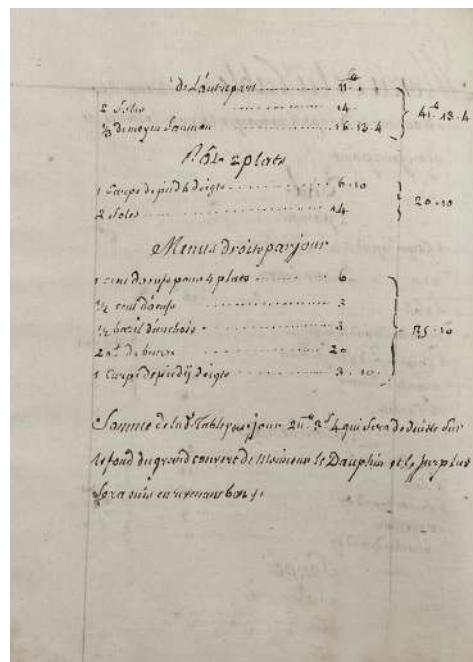 de L'autre part 11 tt
2 Soles 14
⅓ de moyen Saumon 16.13.4
41 tt.13.4
2 plats
1 Carpe de pied 4 doigts 6.10
2 Soles 14
20.10
Menus droits par jour
1 cent d'œufs pour 4 plats 6
½ cent d'œufs 3
½ baril d'anchois 3
20 lt. de beurre 20
1 Carpe de pied doigts 3.10
35.10
Somme de la Table par jour 4 qui sera deduite sur
le fond du grand couvert de Monsieur le Dauphin et le surplus
sera mis en revenans bons